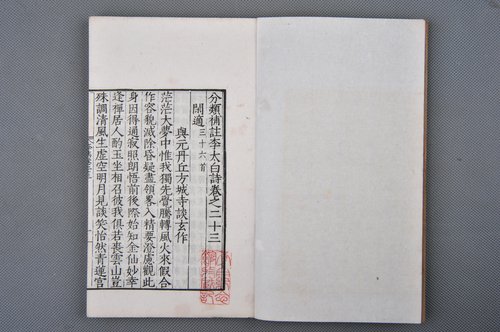 分類補註李太白詩卷之二十三
閑適三十六首
與元丹丘方城寺談玄作
茫茫大夢中惟我獨先覺騰轉風火來假合
作容貌滅除昏疑盡領畧入精要澄慮觀此
身因得通寂照朗悟前後際始知金仙妙幸
逢禪居人酌玉坐相召彼我俱若喪雲山豈
殊調清風生虛空明月見談笑怡然青蓮宫